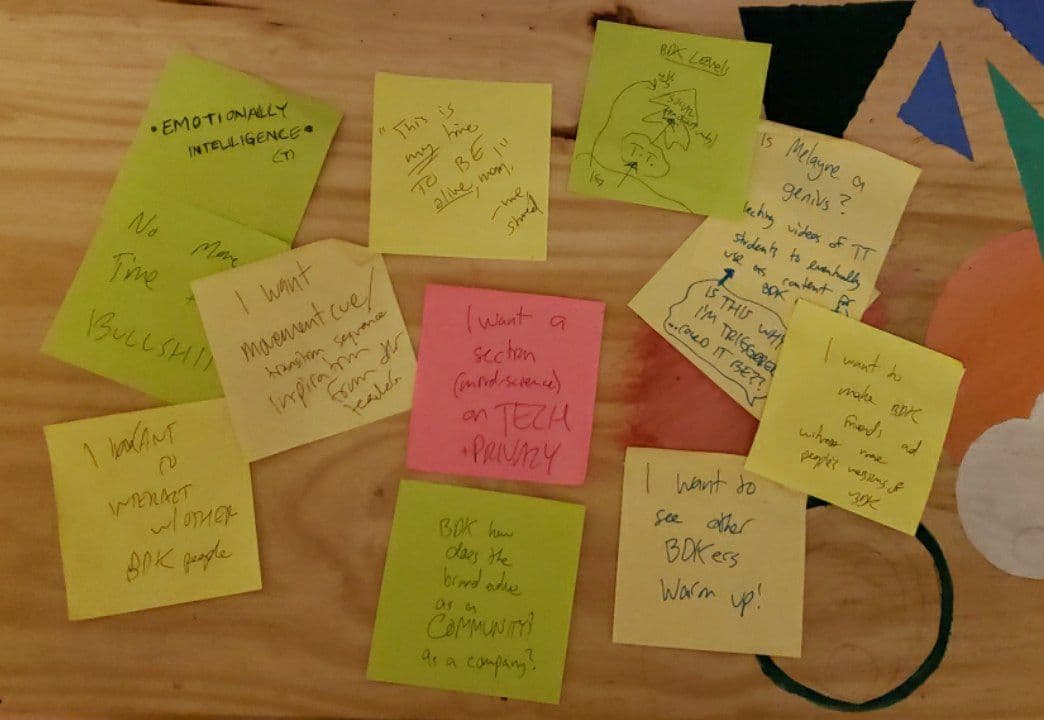 •EMOTIONALLY
INTELLIGENCE•
(T)
No More
Time
BULLSHI
"This is
my time
TO BE
alive, man!"
-me
stoned
BDK Levels
Is Melayne a
genius?
videos of TT
students to eventually
use as content for
BDK
IS THIS WHY
I'M TRIGGERED
...COULD IT BE??
I want
movement cue/
transition sequence
inspiration
from
I want a
section
(mind+science)
on TECH
+PRIVACY
I want to
make BDK
friends and
witness more
people's versions of
BDK
I WANT
TO
INTERACT
W/OTHER
BDK people
BDK how
does the
brand evolve
as a
COMMUNITY?
as a company?
I want to
see other
BDKers
Warm up!